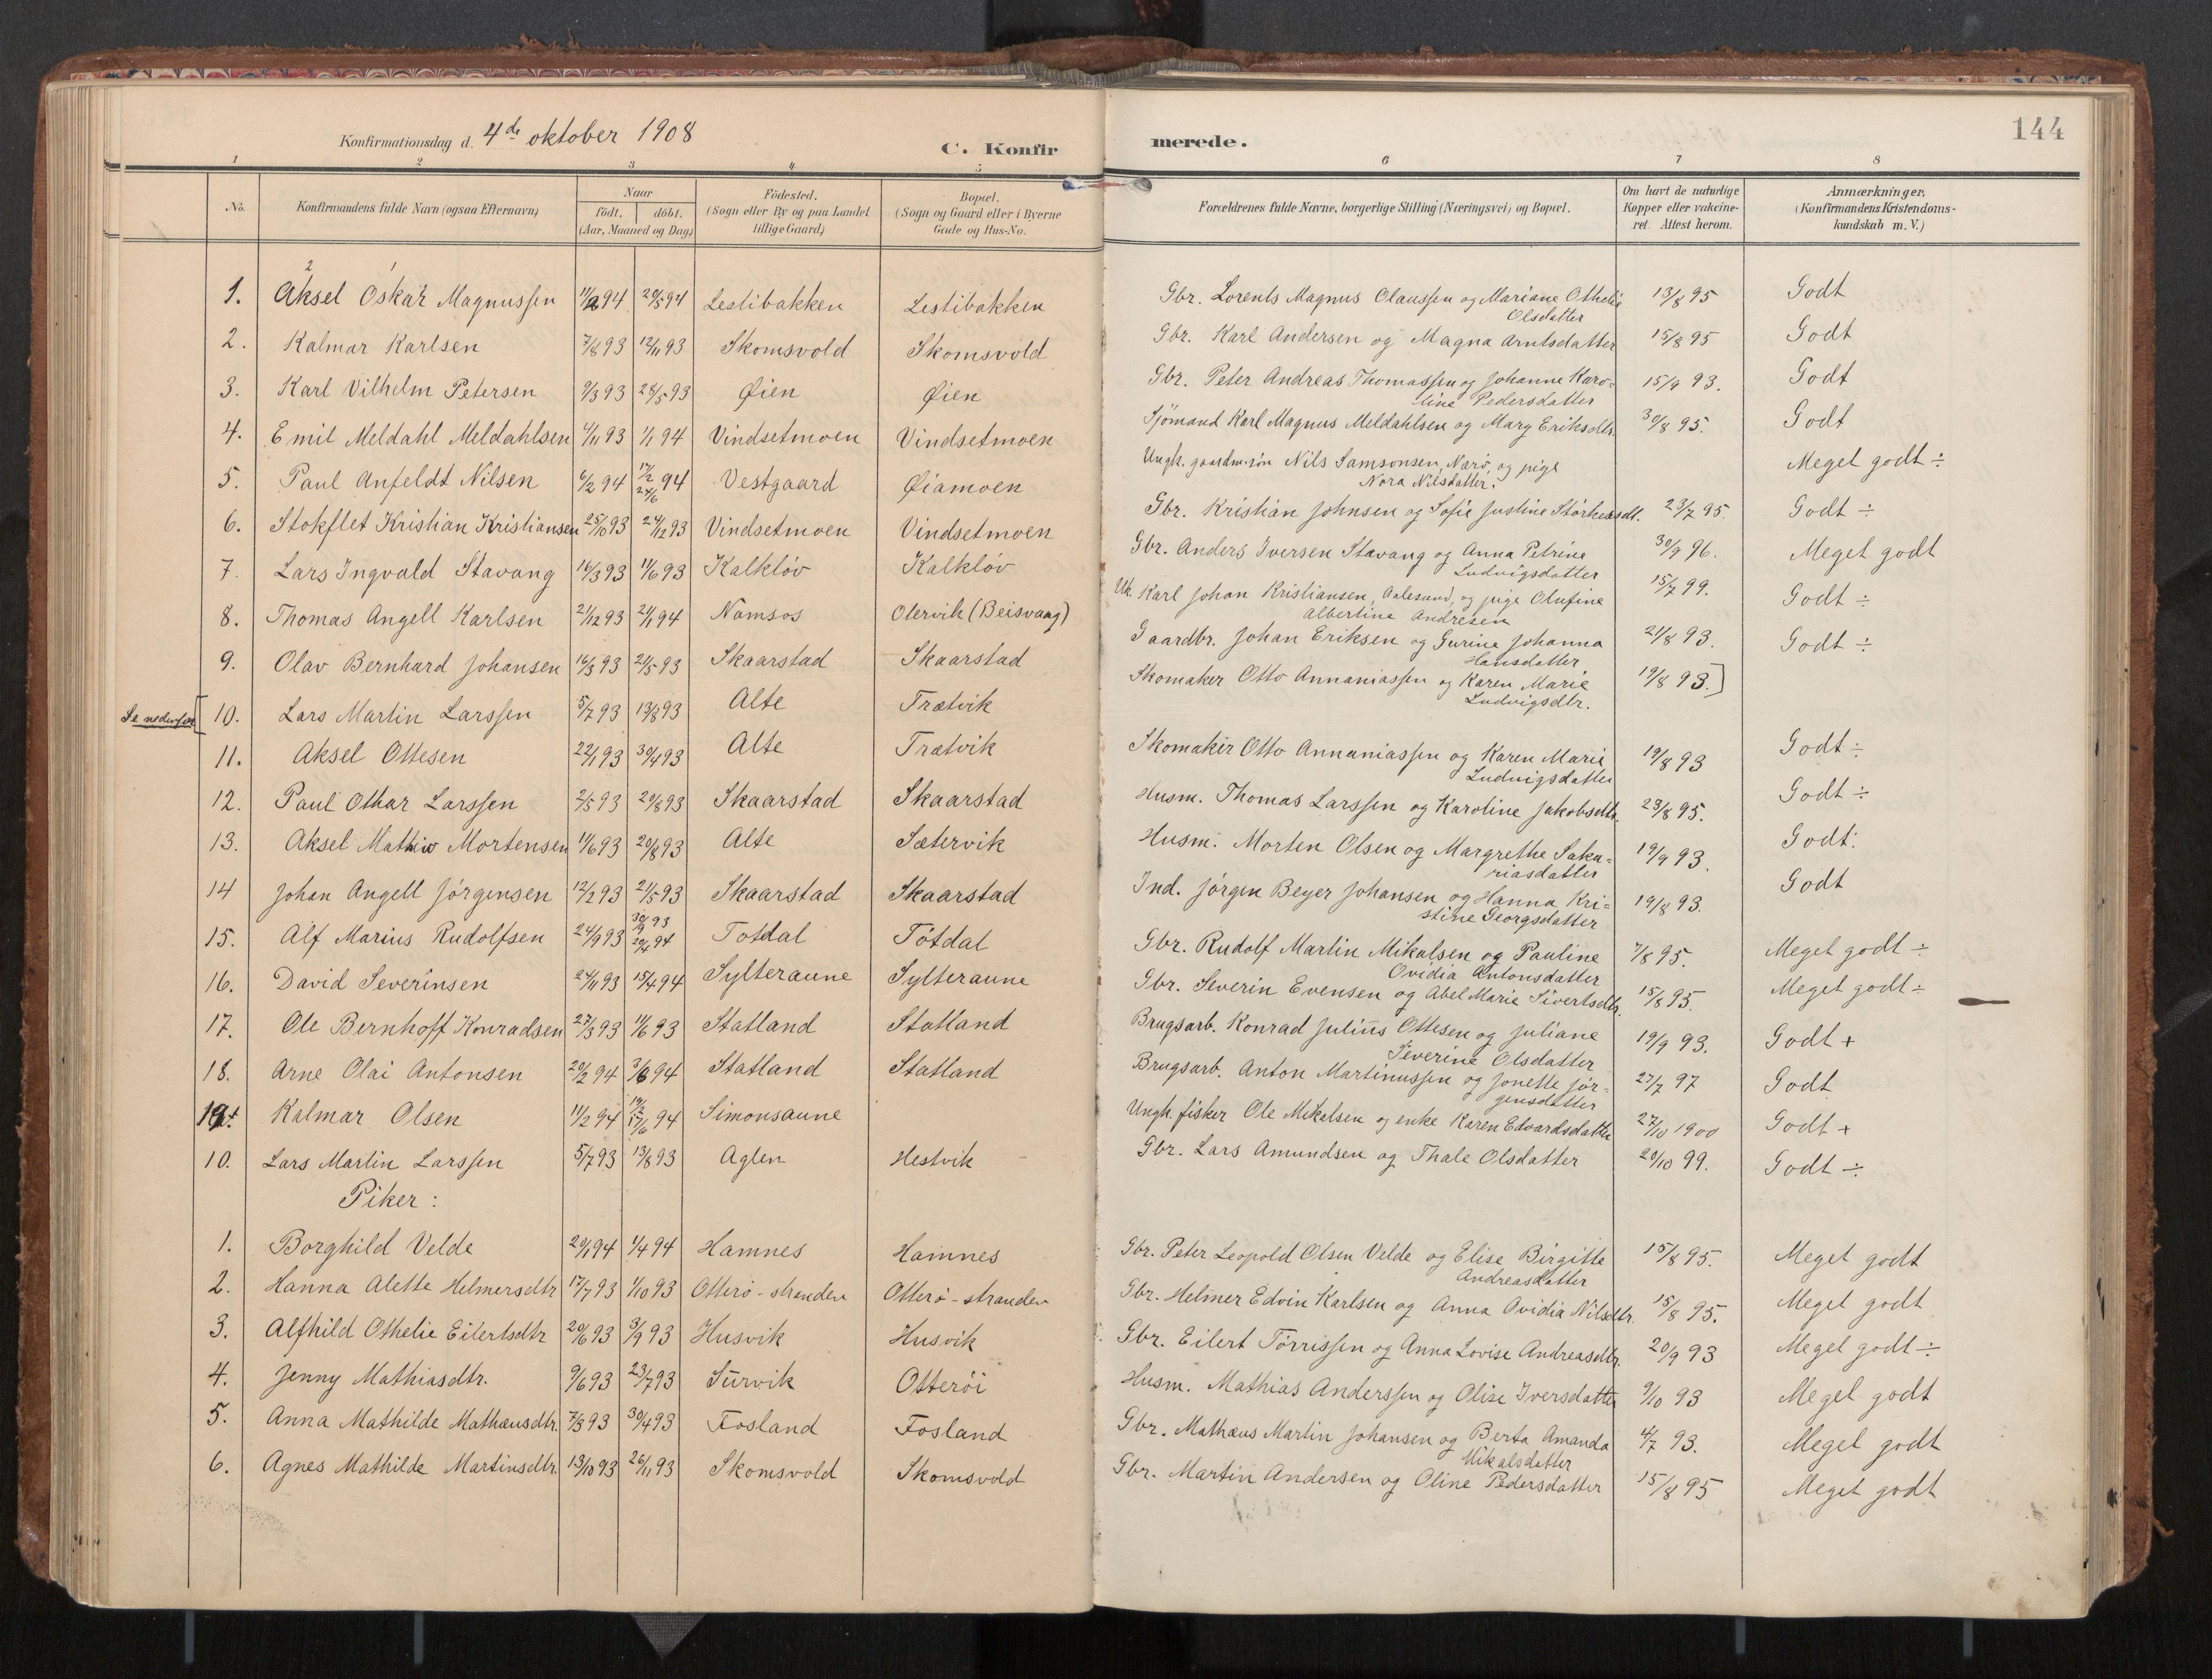 Konfirmationsdag d. 4de oktober 1908
C. Konfir
merede.
144
1 2 3 4 5 6 7 8
No.
Konfirmandens fulde Navn (ogsaa Efternavn)
Naar
födt. döbt.
(Aar, Maaned og Dag)
Födested.
(Sogn eller By og paa Landet
tillige Gaard)
Bopæl.
(Sogn og Gaard eller i Byerne
Gade og Hus-No.
Forældrenes fulde Navne, borgerlige Stilling (Næringsvei) og Bopæl.
Om havt de naturlige
Kopper eller vakcine-
ret. Attest herom.
Anmærkninger.
(Konfirmandens Kristendoms-
kundskab m. V.)
2 1
1. Aksel Oskar Magnussen 11/2 94 20/5 94 Lestibakken Lestibakken Gbr. Lorents Magnus Olaussen og Mariane Othelie 13/8 95 Godt
Olsdatter
2. Kalmar Karlsen 7/8 93 12/11 93 Skomsvold Skomsvold Gbr. Karl Andersen og Magna Arntsdatter 15/8 95 Godt
3. Karl Vilhelm Petersen 9/3 93 24/5 93 Øien Øien Gbr. Peter Andreas Thomassen og Johanne Karo= 15/9 93. Godt
line Pedersdatter
4. Emil Meldahl Meldahlsen 4/11 93 1/1 94 Vindsetmoen Vindsetmoen Sjömand Karl Magnus Meldahlsen og Mary Eriksdtr. 30/8 95. Godt
5. Paul Anfeldt Nilsen 6/2 94 17/2 24/6 94 Vestgaard Øiamoen Ungk. gaardm.søn Nils Samsonsen, Nærø, og pige Meget godt ÷
Nora Nilsdatter.
6. Stokflet Kristian Kristiansen 25/10 93 24/12 93 Vindsetmoen Vindsetmoen Gbr. Kristian Johnsen og Sofie Justine Størkersdt. 23/7 95. Godt ÷
7. Lars Ingvald Stavang 16/3 93 11/6 93 Kalkløv Kalkløv Gbr. Anders Iversen Stavang og Anna Petrine 30/9 96. Meget godt
Ludvigsdatter
8. Thomas Angell Karlsen 21/12 93 21/1 94 Namsos Olervik (Beisvaag) Uk. Karl Johan Kristiansen, Aalesund, og pige Olufine 15/7 99. Godt ÷
Albertine Andresen
9. Olav Bernhard Johansen 16/3 93 21/5 93 Skaarstad Skaarstad Gaardbr. Johan Eriksen og Gurine Johanna 21/8 93. Godt ÷
Hansdatter
Se nedenfor [10. Lars Martin Larssen 5/7 93 13/8 93 Alte Trætvik Skomaker Otto Annaniassen og Karen Marie 19/8 93.]
Ludvigsdtr.
11. Aksel Ottesen 22/1 93 30/4 93 Alte Trætvik Skomaker Otto Annaniassen og Karen Marie 19/8 93 Godt ÷
Ludvigsdatter
12. Paul Othar Larssen 2/5 93 20/8 93 Skaarstad Skaarstad Husm. Thomas Larssen og Karoline Jakobsdtr. 23/8 95. Godt ÷
13. Aksel Mathis Mortensen 11/6 93 20/8 93 Alte Sætervik Husm. Morten Olsen og Margrethe Saka= 19/9 93. Godt:
riasdatter
14 Johan Angell Jørgensen 12/2 93 21/5 93 Skaarstad Skaarstad Ind. Jørgen Beyer Johansen og Hanna Kri= 19/8 93. Godt
stine Georgsdatter
15. Alf Marius Rudolfsen 24/9 93 30/9 93 20/4 94 Totdal Totdal Gbr. Rudolf Martin Mikalsen og Pauline 7/8 95. Meget godt ÷
Ovidia Antonsdatter
16. David Severinsen 24/11 93 15/4 94 Sylteraune Sylteraune Gbr. Severin Evensen og Abel Marie Sivertsdtr. 15/8 95. Meget godt ÷
17. Ole Bernhoff Konradsen 27/3 93 11/6 93 Statland Statland Brugsarb. Konrad Julius Ottesen og Juliane 19/9 93. Godt +
Severine Olsdatter
18. Arne Olai Antonsen 20/2 94 3/6 94 Statland Statland Brugsarb. Anton Martinussen og Jonette Jør- 23/7 97 Godt
gensdatter
19. Kalmar Olsen 11/2 94 14/2 17/6 94 Simonsaune Ungk. fisker Ole Mikalsen og enke Karen Edvardsdatter 27/10 1900 Godt +
10. Lars Martin Larssen 5/7 93 13/8 93 Aglen Hestvik Gbr. Lars Amundsen og Thale Olsdatter 20/10 99. Godt ÷
Piker:
1. Borghild Velde 20/1 94 1/4 94 Hamnes Hamnes Gbr. Peter Leopold Olsen Velde og Elise Birgitte 15/8 95. Meget godt
Andreasdatter
2. Hanna Alette Helmersdtr 17/7 93 1/10 93 Otterø-stranden Otterø-stranden Gbr. Helmer Edvin Karlsen og Anna Ovidia Nilsdtr. 15/8 95. Meget godt
3. Alfhild Othelie Eilertsdtr 20/6 93 3/9 93 Husvik Husvik Gbr. Eilert Tørrissen og Anna Lovise Andreasdtr. 20/9 93 Meget godt ÷
4. Jenny Mathiasdtr. 9/6 93 23/7 93 Survik Otterøi Husm. Mathias Anderssen og Olise Iversdatter 9/10 93 Meget godt
5. Anna Mathilde Mathæusdtr. 7/3 93 30/4 93 Fosland Fosland Gbr. Mathæus Martin Johansen og Berta Amanda 4/7 93. Meget godt
Mikalsdatter
6. Agnes Mathilde Martinsdtr. 13/10 93 26/11 93 Skomsvold Skomsvold Gbr. Martin Andersen og Oline Pedersdatter 15/8 95 Meget godt